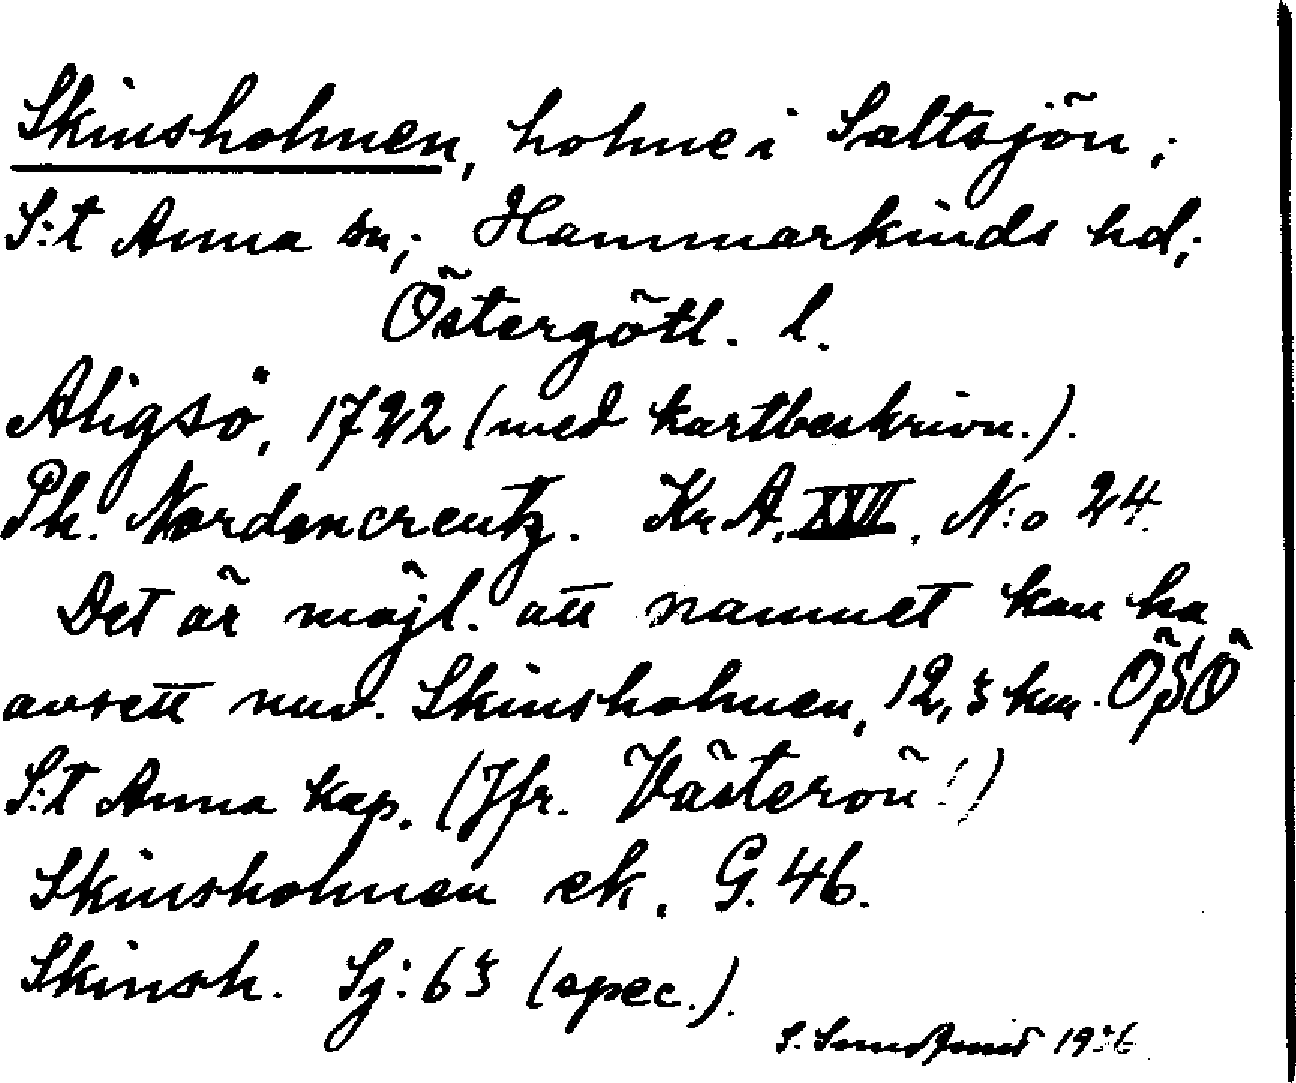 Skinsholmen, holme i Saltsjön;
S:t Anna sn; Hammarkinds hd;
Östergötl. l.
Aligsö, 1722 (med kartbeskrivn.).
Ph. Nordencreutz. Kr A, XVII, N:o 24.
Det är möjl. att namnet kan ha
avsett nuv. Skinsholmen, 12,5 km. ÖSÖ
S:t Anna kap. (Jfr. Västerön!)
Skinsholmen ek. G. 46.
Skinsh. Sj: 65 (spec.).
S. 1936